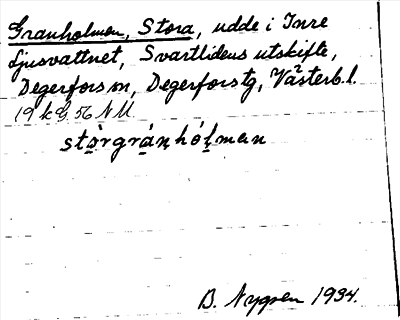 Granholmen, Stora, udde i Inre
Ljusvattnet, Svartlidens utskifte,
Degerfors sn, Degerfors tg, Västerb. l.
19 k G 56 NU
stòrgránhól̥man
B. Nygren 1934.